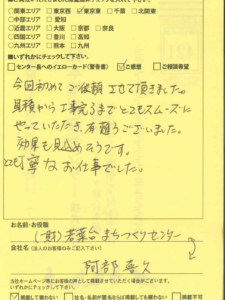 ○関東エリア □東京西 ☑東京東 □千葉 □北関東
○中部エリア □愛知
○近畿エリア □大阪 □京都 □奈良
○四国エリア □香川 □高知
○九州エリア □熊本 □九州
■いずれかにチェックして下さい。
□センター長へのイエローカード(警告書) ☑ご感想 □ご相談要望
今回初めてご依頼させて頂きました。
見積から工事完了までとてもスムーズに
やっていただき、有難うございました。
効果も見込めそうです。
とても丁寧なお仕事でした。
お名前・お役職
(財)若葉台まちづくりセンター
会社名 (法人のお客様のみご記入下さい)
阿部喜久
☑掲載して構わない □社名・名前が匿名ならば掲載しても構わない □掲載不可